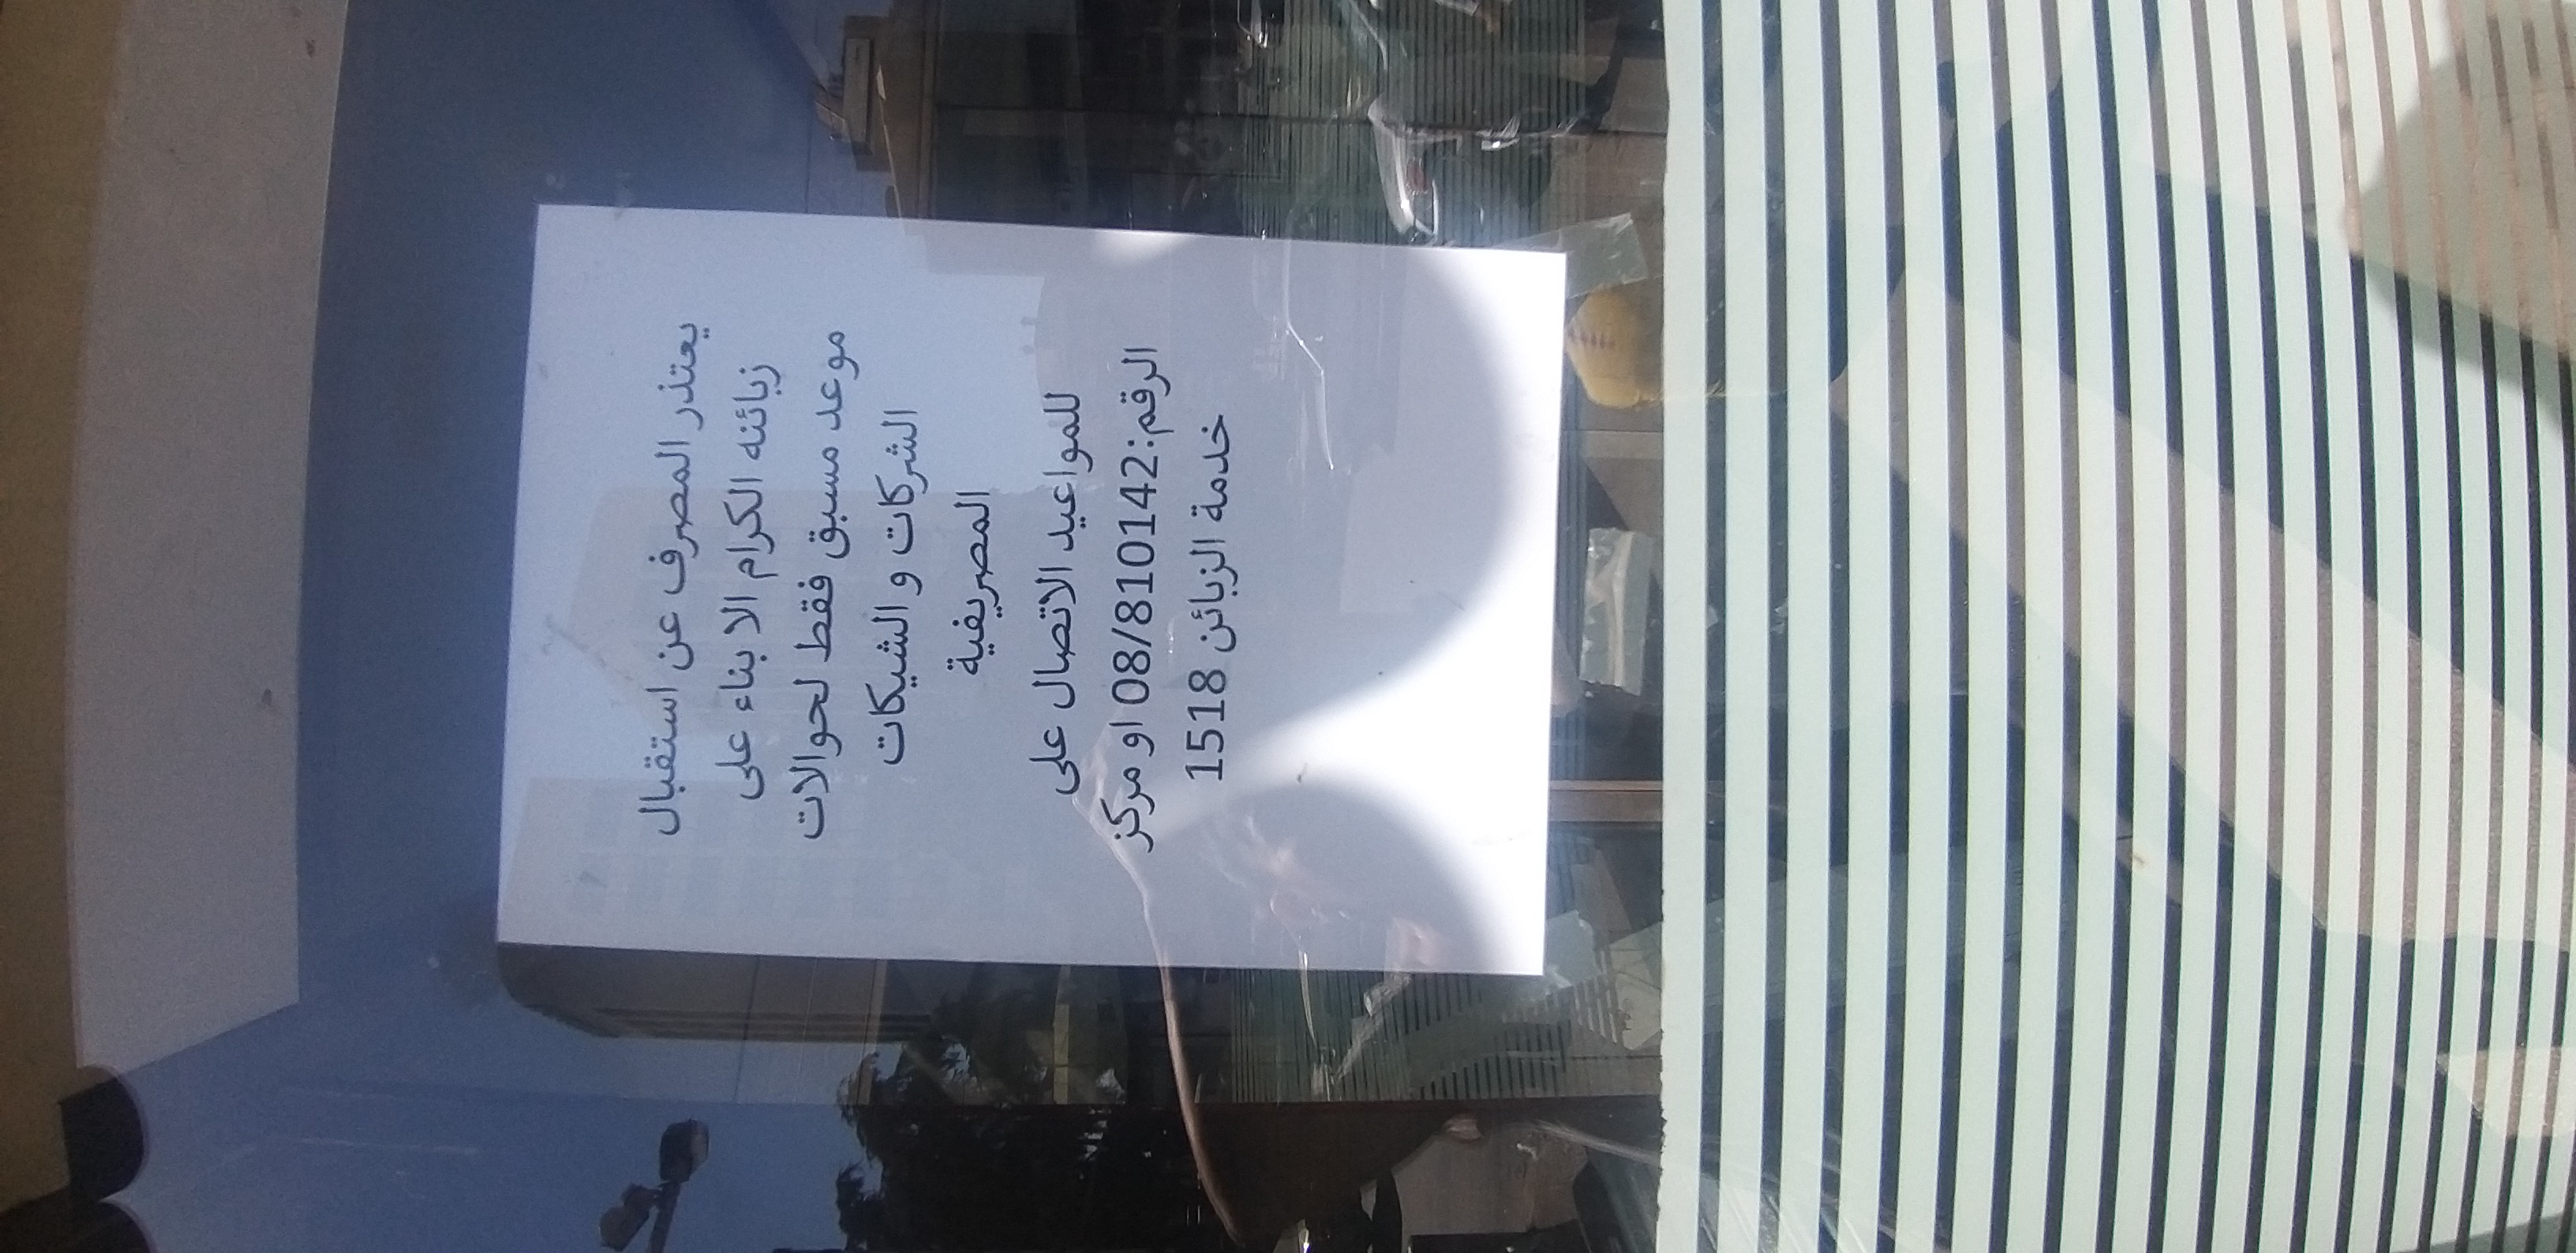 يعتذر المصرف عن استقبال
زبائنه الكرام الا بناء على
موعد مسبق فقط لحوالات
الشركات و الشيكات
المصريفية
للمواعيد الاتصال على
الرقم:08/810142 او مركز
خدمة الزبائن 1518